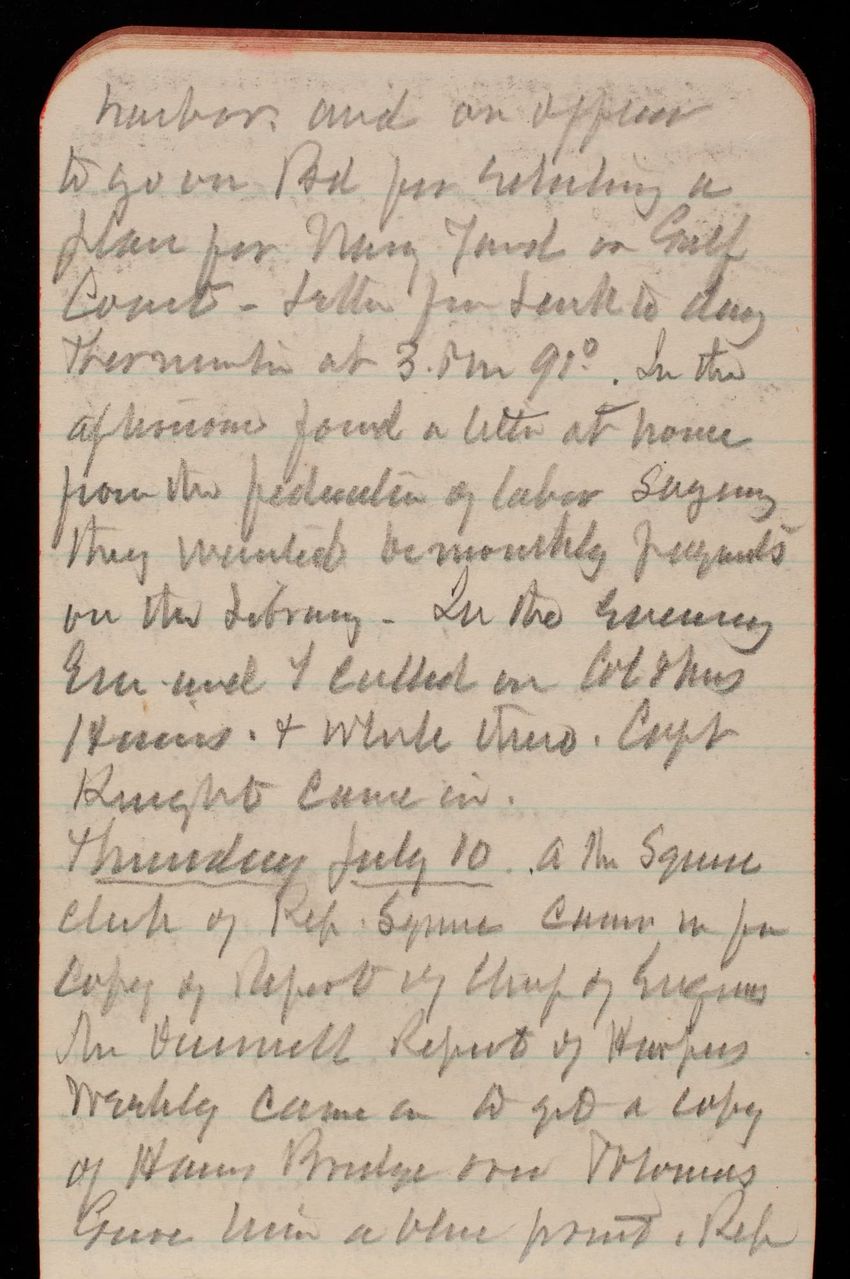 harbor. and an officer
to go on Bd for selecting a
plan for Navy Yard on Gulf
Coast - Letter from Senk to day
Thermometer at 3. PM 91°. In the
afternoon found a letter at home
from the federation of labor saying
they wanted bemonthly payments
on the Library - In the Evening
Em and I called on Col & Mrs
Hains. & while there. Capt
Knight came in.
Thursday July 10. A Mr Squire
clerk of Rep. Squire came in for
copy of Report of Chief of Engineers
Mr Report of Harpers
Weekly came in to get a copy
of Hains Bridge over Potomac
Gave him a blue print. Rep